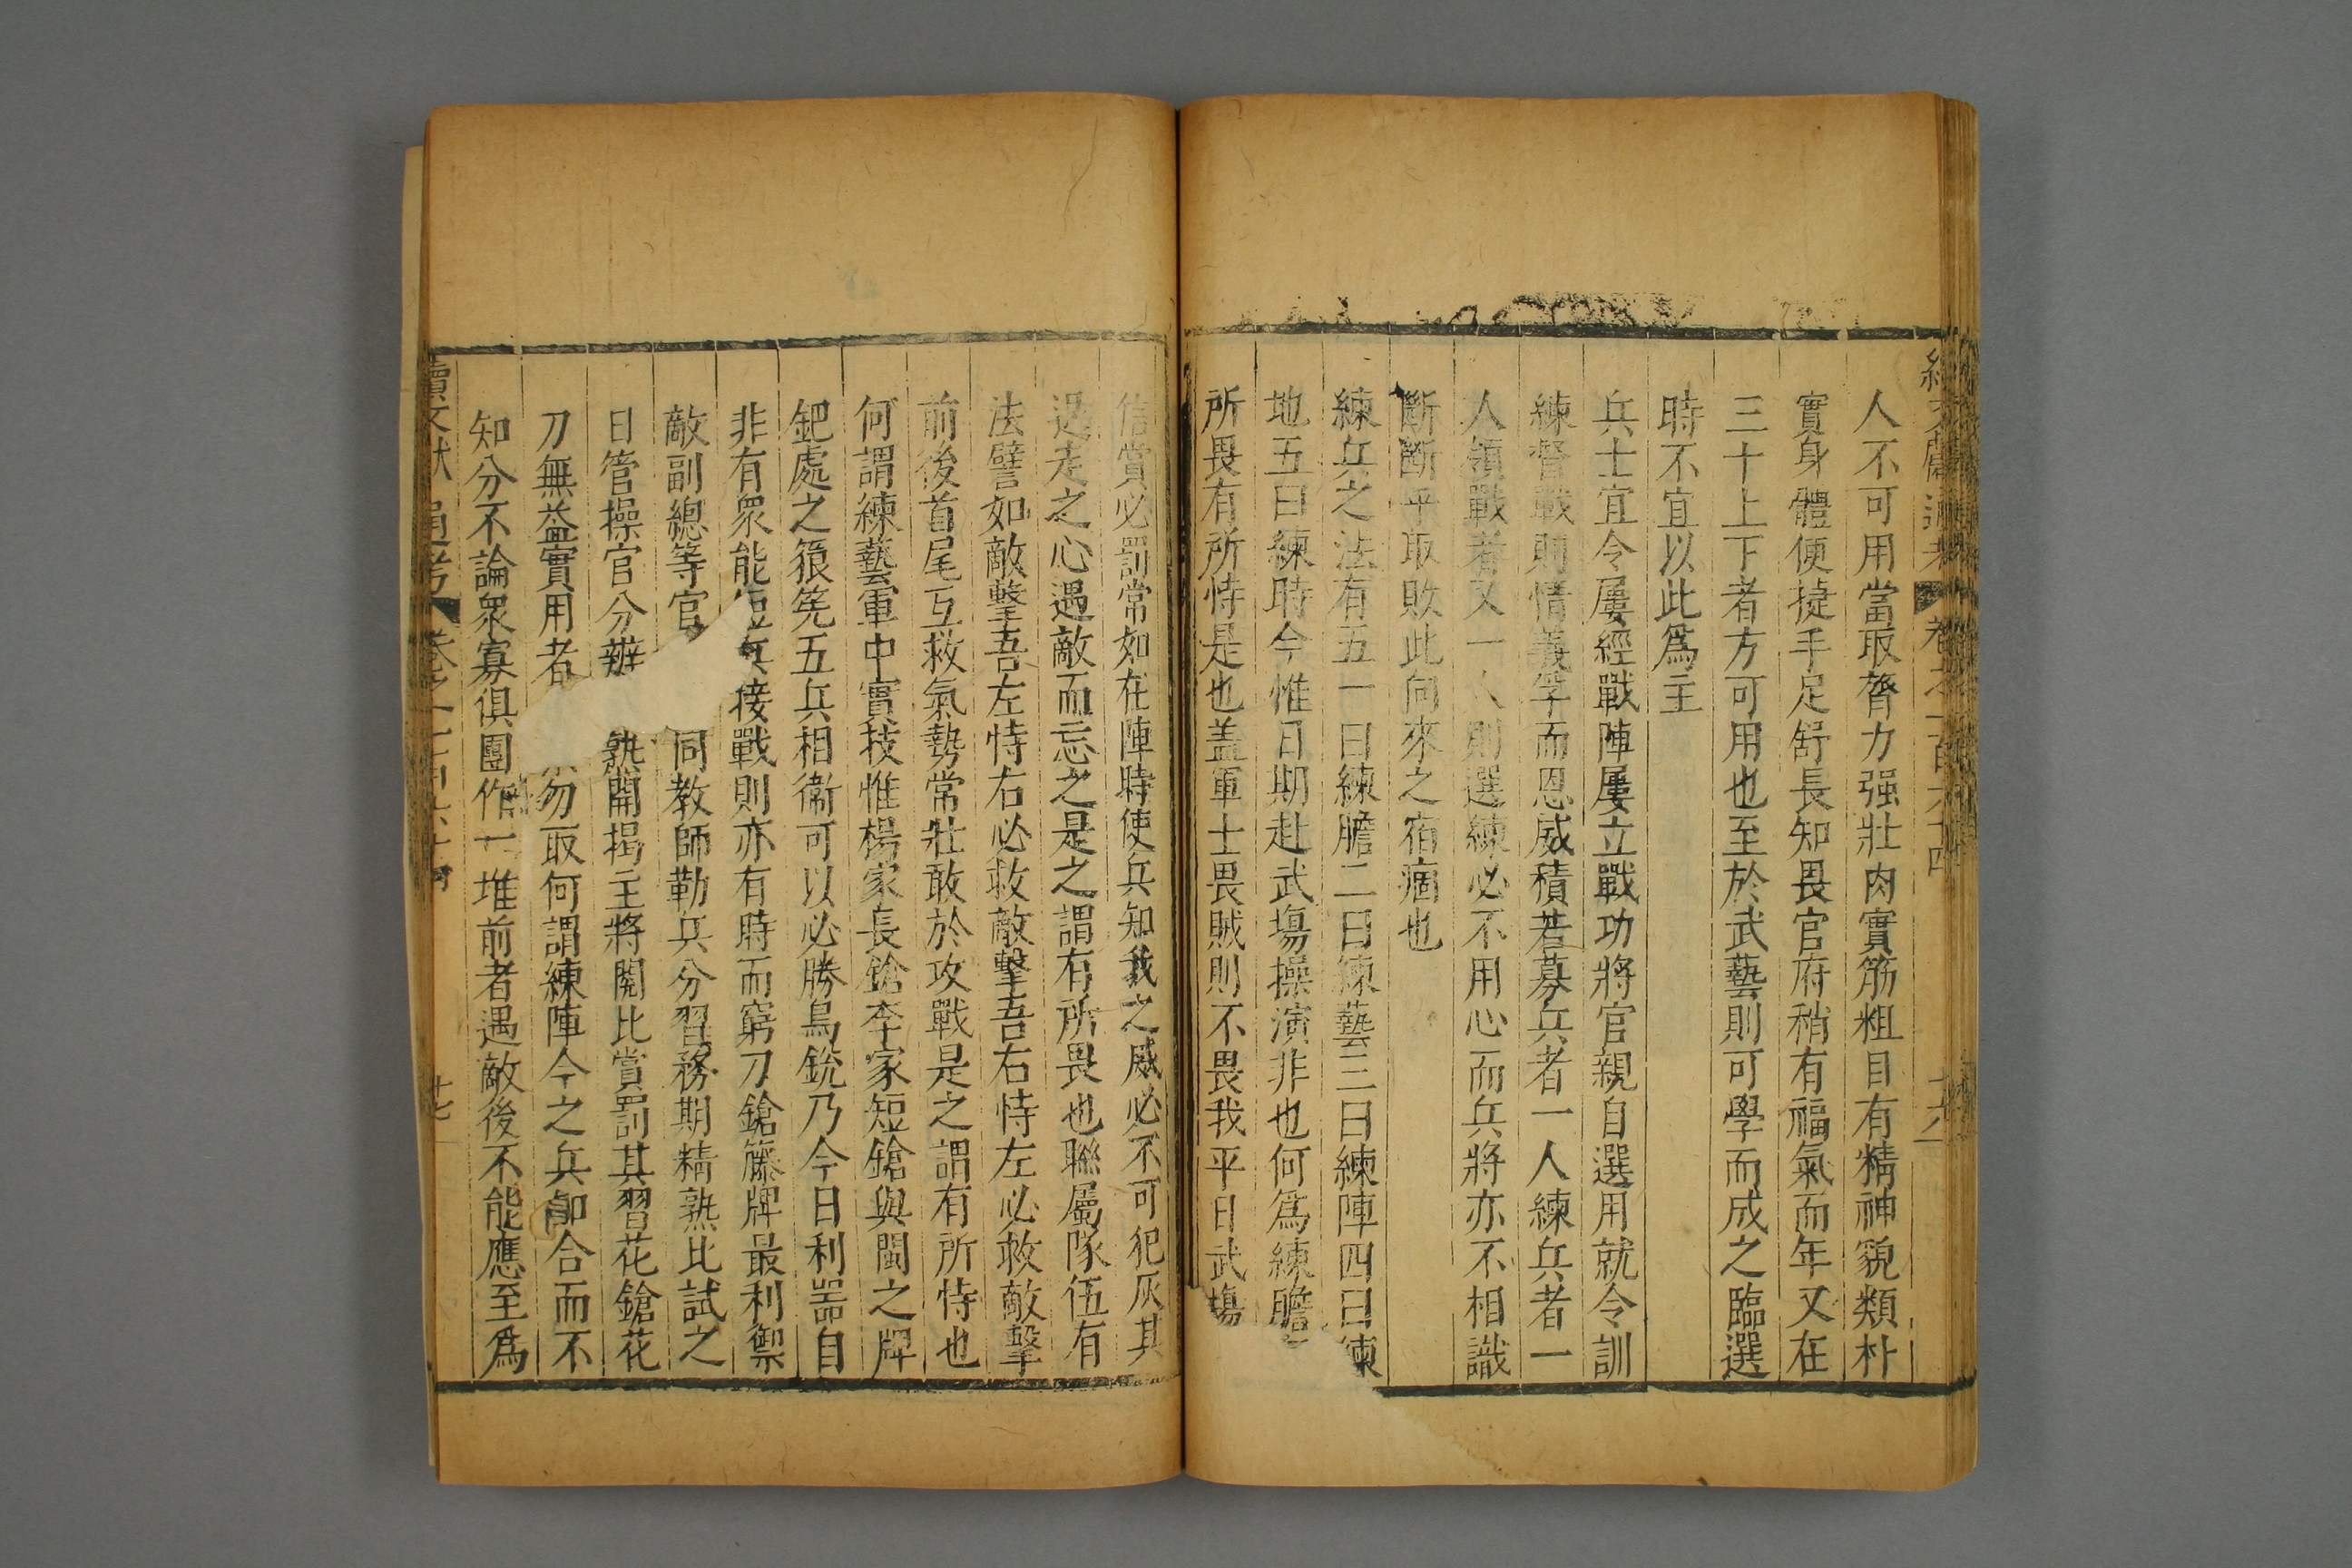 人不可用當取膂力强壯肉實筋粗目有精神貌類朴
實身體便㨗手足舒長知畏官府稍有福氣而年又在
三十上下者方可用也至於武藝則可學而成之臨選
時不宜以此爲主
兵士宜令屢經戰陣屢立戰功將官親自選用就令訓
練督戰則情義孚而恩威積若募兵者一人練兵者一
人領戰者又一人則選練必不用心而兵將亦不相識
斷斷乎取敗此向來之宿痼也
練兵之法有五一曰練膽二曰練藝三曰練陣四曰練
地五曰練時今惟日期赴武塲操演非也何爲練膽
所畏有所恃是也盖軍士畏賊則不畏我平日武塲
信賞必罰常如在陣時使兵知我之威必不可犯灰其
退走之心遇敵而忘之是之謂有所畏也聯屬隊伍有
法譬如敵擊吾左恃右必救敵擊吾右恃左必救敵擊
前後首尾互救氣勢常壯敢於攻戰是之謂有所恃也
何謂練藝軍中實技惟楊家長鎗李家短鎗與閩之牌
鈀處之狼筅五兵相衛可以必勝鳥銃乃今日利器自
非有衆能短兵接戰則亦有時而窮刀鎗籐牌最利禦
敵副總等官同教師勒兵分習務期精熟比試之
日管操官分辦熟開揭主將閱比賞罰其習花鎗花
刀無益實用者勿取何謂練陣今之兵卽合而不
知分不論衆寡俱團作一堆前者遇敵後不能應至爲
續文獻通考
卷之一百六十四
十七